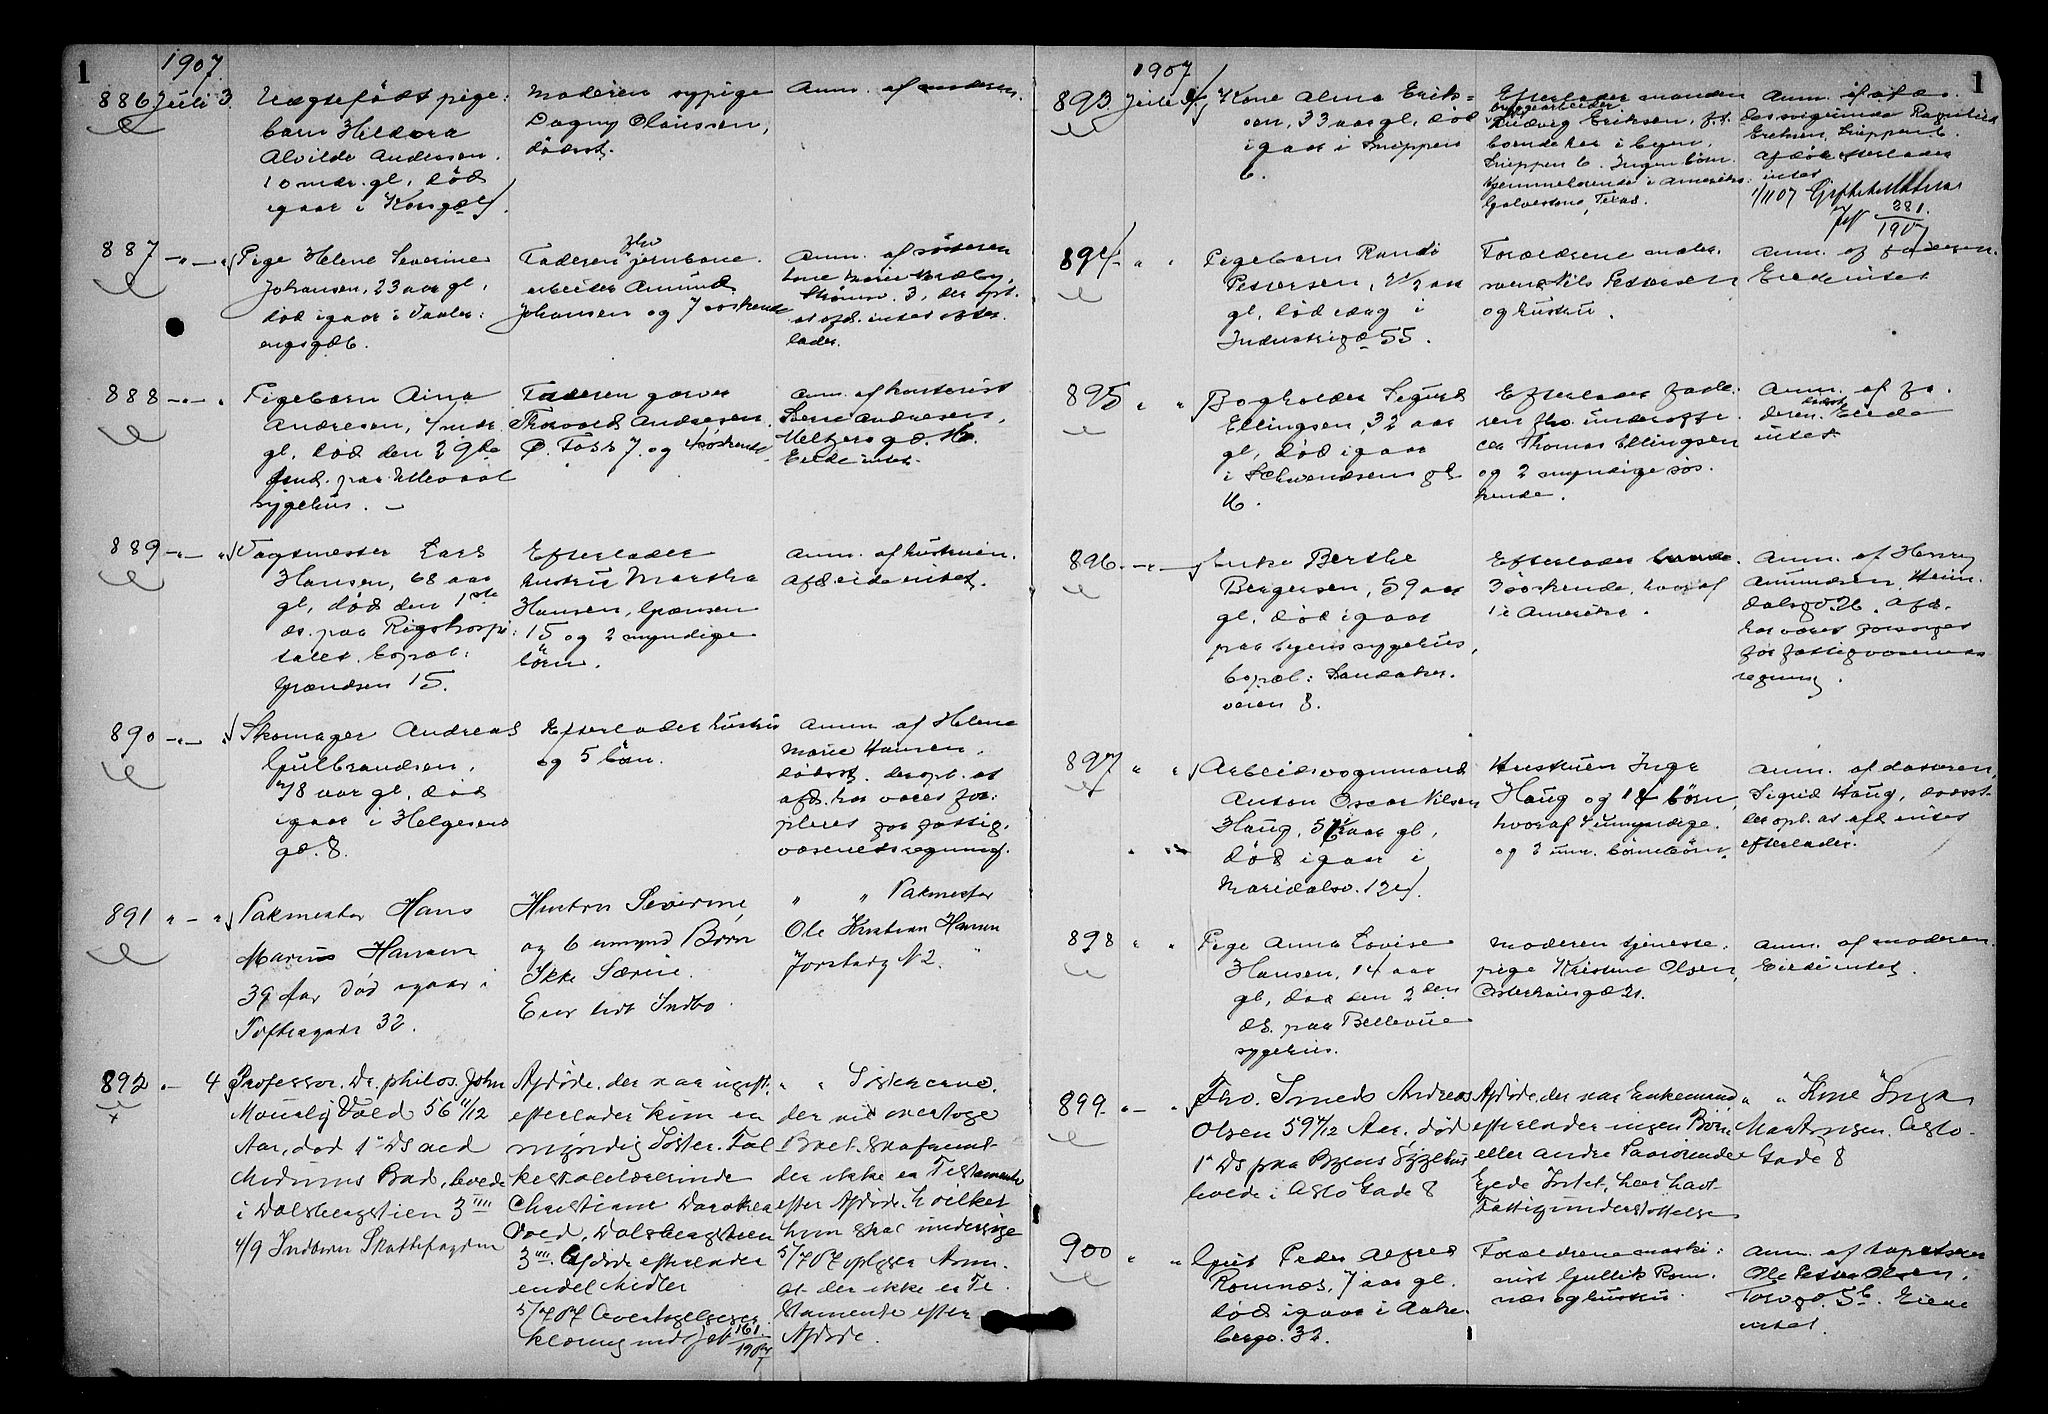 1
1907.
886 Juli 3. Uægtefödt pige-
barn Hildora
Alvilde Andersen.
10 mdr. gl., död
igaar i Korsgd.
Moderen sypige
Dagny Olaussen,
dödsst.
Anm. af moderen.
887 Pige Helene Severine
Johansen, 23 aar gl,
död igaar i Vaaler-
engsgd 6.
Faderen fhv jernbane-
arbeider Amund
Johansen og 7 söskende
Anm. af söstern
3, der opl.
at afd. intet efter-
lader.
888 Pigebarn Aina
Andresen, 4 mdr
gl, död den 29de
f.md. paa Ullevaal
sygehus.
Faderen garver
Thorvald Andresen,
Ø. Foss 7. og 4 söskende
Anm. af kontorist
Andresen,
Meltzersgd. 16.
Eiede intet.
889 Vagtmester Lars
Hansen, 68 aar
gl, död den 1ste
ds. paa Rigshospi-
talet. bopæl:
Grændsen 15.
Efterlader
hustru Martha
Hansen, Grænsen
15 og 2 myndige
börn.
Anm. af hustruen.
Afd eiede intet.
890 Skomager Andreas
Gulbrandsen,
78 aar gl, död
igaar i Helgesens
gd. 8.
Efterlader hustru
og 5 börn.
Anm af Helene
Marie Hansen,
dödsst. der opl. at
afd. har været for-
pleiet for fattig-
væsenets regning.
891 Pakmester Hans
Marius Hansen
39 Aar död igaar i
Toftesgade 32.
Hustru Severine,
og 6 umynd Börn
Ikke Særeie.
Eier lidt Indbo.
" " Pakmester
Ole Kristian Hansen
Jorsberg N 2.
892 4 Professor, Dr. philos. John
Mourly Vold 56 11/12
Aar, død 1' Ds ved
Modums Bad, boede
i Dalsbergstien 3""
4/9 Indberu Skattefogden
Afdøde, der var ugift,
efterlader kun en
myndig Søster. Fol
keskolelærerinde
Christiane Dorothea
Vold, Dalsbergstien
3"". Afdøde efterlader
endel Midler
5/7 07 Overtagelseser
klæring med Jnl 161/1907
" " Søsteren
der vil overtage
Boet. Skaferant
der ikke er Testamente
efter Afdøde. hvilket
hun skal undersøge
5/7 07 oplyser Anm.
at der ikke er Te
stamente efter
Afdøde.
1
1907
893. Juli 4 Kone Alma Erik-
sen, 33 aar gl, död
igaar i Snippen
6.
Efterlader manden
bryggearbeider
Ludvig Eriksen, f.t.
boende her i byen,
Snippen 6. Ingen börn.
Hjemmehörende i Amerika.
Galveston, Texas.
Anm. af afdö-
des svigerinde Ragnhild
Eriksen, Snippen 6.
Afdöde efterlader
intet
1/11 07
Jnl 281/1907
894 Pigebarn Randi
Pettersen, 1/2 aar
gl, död idag i
Industrigd 55.
Forældrene maler-
svend Nils Pettersen
og hustru.
Anm. af faderen.
Eiede intet
895 Bogholder Sigurd
Ellingsen, 32 aar
gl, död igaar
i Schwendsens gd
16.
Efterlader fade-
ren fhv. underoffi-
cer Thomas Ellingsen
og 2 myndige sös-
kende.
Anm. af fa-
deren. dödsst. Eiede
intet.
896. Enke Berthe
Bergersen, 59 aar
gl, död igaar
paa byens sygehus,
bopæl: Sandaker-
veien 8.
Efterlader
3 söskende, hvoraf
1 i Amerika.
Anm. af Henry
Amundsen, Heim-
dalsgd. 26. Afd.
har været forsörget
for fattigvæsenets
regning.
897 Arbeidsvognmand
Anton Oscar Nilsen
Haug, 5 aar gl,
död igaar i
Maridalsv. 124.
Hustruen Inga
Haug og 14 börn,
hvoraf 4 umyndige.
og 3 um. börnebörn.
Anm. af datteren,
Sigrid Haug, dödsst.
der opl. at afd intet
efterlader.
898 Pige Anna Lovise
Hansen, 14 aar
gl, död den 2den
ds. paa Bellevue
sygehus.
Moderen tjeneste-
pige Kristine Olsen,
Osterhausgd 21.
Anm. af moderen.
Eiede intet.
899. Fhv. Smed Andreas
Olsen 59 4/12 Aar, død
1' Ds paa Byens Sygehus
boede i Oslo Gade 8
Afdøde, der var Enkemand
efterlader ingen Børn
eller andre Paarørende
Eiede Intet, har havt
Fattigunderstøttelse
" " Kone Inga
Oslo-
Gade 8
900 Gut Peder Alfred
Romnæs, 7 aar gl.
död igaar i Aake-
bergv. 32.
Forældrene maski-
nist Gullik Rom-
næs og hustru.
Anm. af tapetserer
Ole Petter Olsen,
Torvgd. 5b. Eiede
intet.